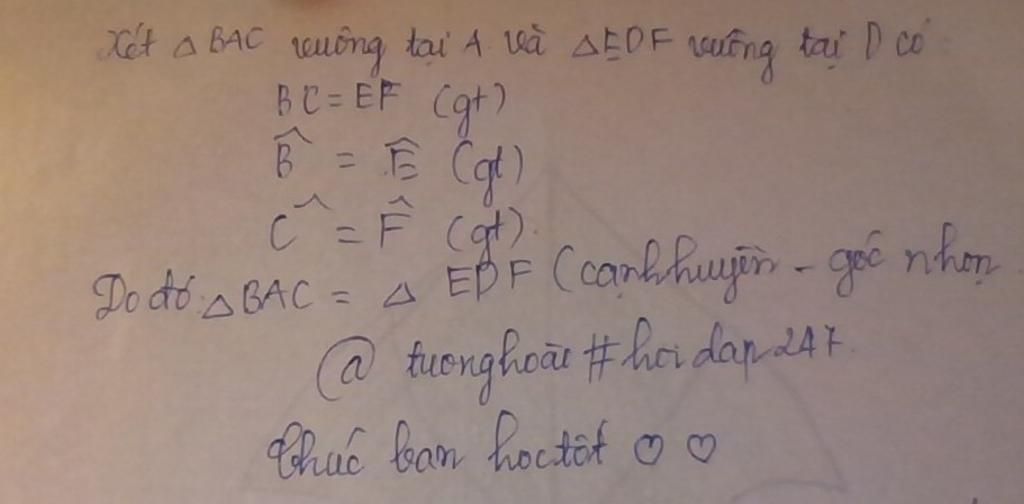 Xét △ BAC vuông tại A và △EDF vuông tại D có
BC = EF (gt)
B̂ = Ê (gt)
Ĉ = F̂ (gt).
Do đó △BAC = △ EDF (cạnh huyền - góc nhọn
@ tuonghoai #hoidap247.
Chúc bạn học tốt ♡ ♡